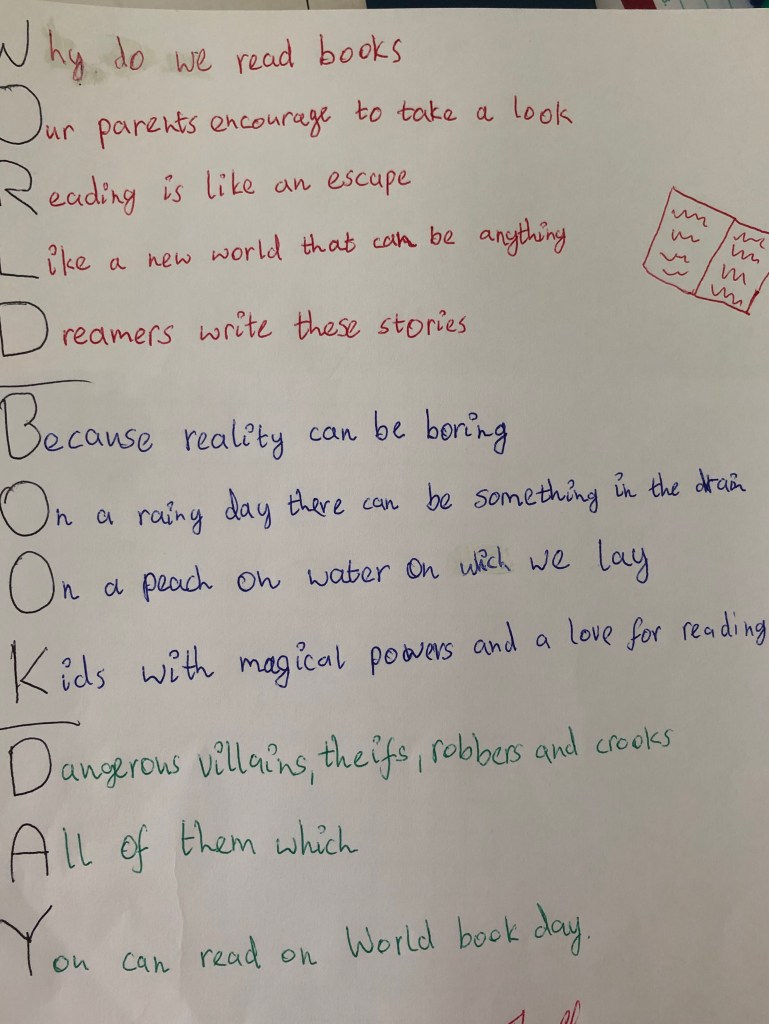 Why do we read books
Our parents encourage to take a look
Reading is like an escape
Like a new world that can be anything
Dreamers write these stories
Because reality can be boring
On a rainy day there can be something in the drain
On a peach on water on which we lay
Kids with magical powers and a love for reading
Dangerous villains, theifs, robbers and crooks
All of them which
You can read on World book day.